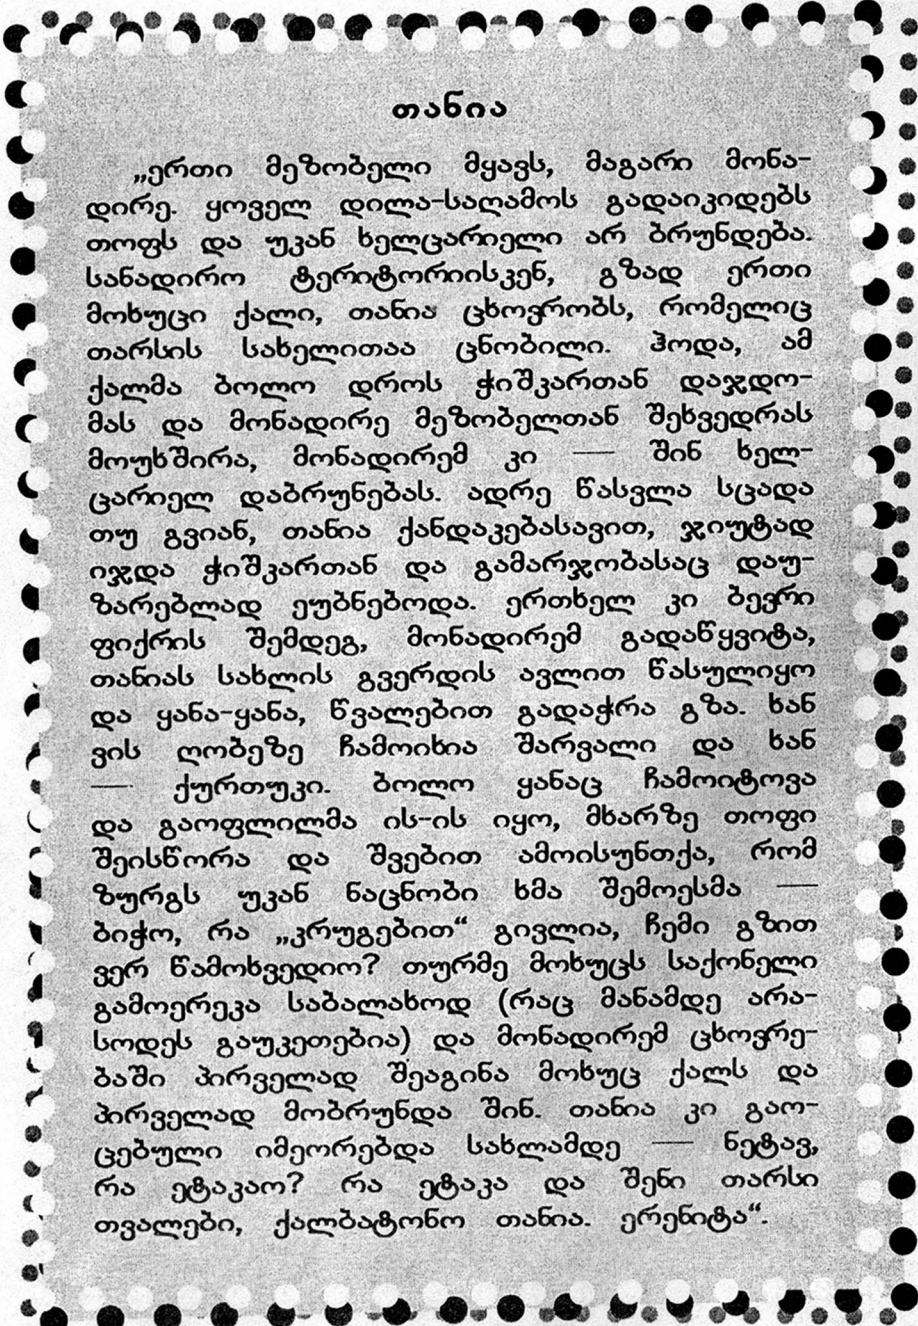 თანია
„ერთი მეზობელი მყავს, მაგარი მონა-
დირე. ყოველ დილა-საღამოს გადაიკიდებს
თოფს და უკან ხელცარიელი არ ბრუნდება.
სანადირო ტერიტორიისკენ, გზად ერთი
მოხუცი ქალი, თანია ცხოვრობს, რომელიც
თარსის სახელითაა ცნობილი. ჰოდა, ამ
ქალმა ბოლო დროს ჭიშკართან დაჯდო-
მას და მონადირე მეზობელთან შეხვედრას
მოუხშირა, მონადირემ კი — შინ ხელ-
ცარიელ დაბრუნებას. ადრე წასვლა სცადა
თუ გვიან, თანია ქანდაკებასავით, ჯიუტად
იჯდა ჭიშკართან და გამარჯობასაც დაუ-
ზარებლად ეუბნებოდა. ერთხელ კი ბევრი
ფიქრის შემდეგ, მონადირემ გადაწყვიტა,
თანიას სახლის გვერდის ავლით წასულიყო
და ყანა-ყანა, წვალებით გადაჭრა გზა. ხან
ვის ღობეზე ჩამოიხია შარვალი და ხან
— ქურთუკი. ბოლო ყანაც ჩამოიტოვა
და გაოფლილმა ის-ის იყო, მხარზე თოფი
შეისწორა და შვებით ამოისუნთქა, რომ
ზურგს უკან ნაცნობი ხმა შემოესმა —
ბიჭო, რა „კრუგებით“ გივლია, ჩემი გზით
ვერ წამოხვედიო? თურმე მოხუცს საქონელი
გამოერეკა საბალახოდ (რაც მანამდე არა-
სოდეს გაუკეთებია) და მონადირემ ცხოვრე-
ბაში პირველად შეაგინა მოხუც ქალს და
პირველად მობრუნდა შინ. თანია კი გაო-
ცებული იმეორებდა სახლამდე — ნეტავ,
რა ეტაკაო? რა ეტაკა და შენი თარსი
თვალები, ქალბატონო თანია. ერენიტა“.